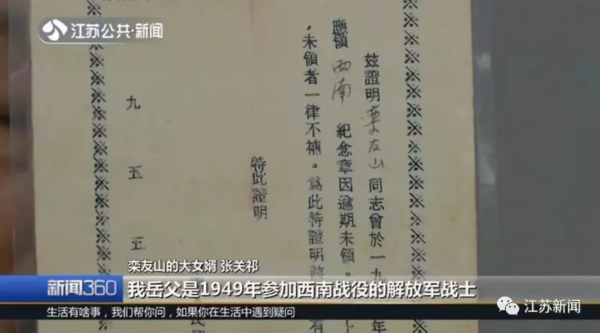 江苏公共·新闻
茲證明栾友山同志曾於一九
應領西南紀念章因逾期未領。
，未領者一律不補。爲此特證明
特此證明
九五五
栾友山的大女婿 张关祁
新闻360
我岳父是1949年参加西南战役的解放军战士
生活有啥事，我们帮你问，如果你在生活中遇到疑问
江苏新闻